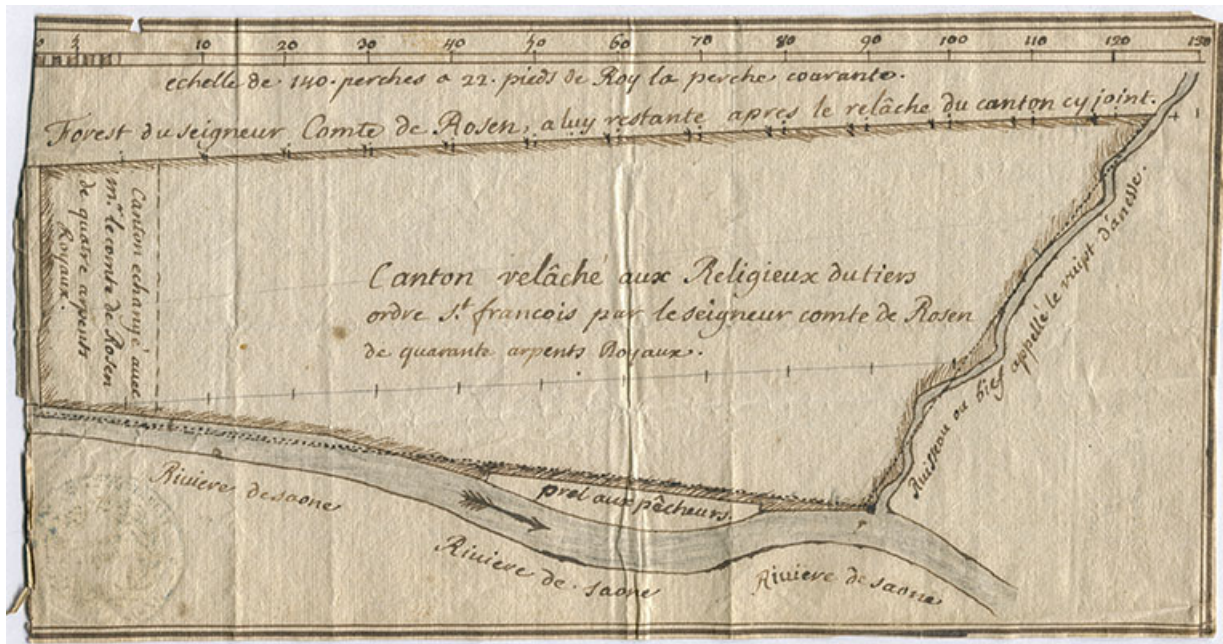 10 20 30 40 50 60 70 80 90 100 110 120 130
echelle de 140. perches a 22. pieds de Roy la perche courante.
Forest du seigneur Comte de Rosen, a luy restante apres le relâche du canton cy joint.
Canton echangé avec
mr. le comte de Rosen
de quatre arpents
Royaux.
Canton relâché aux Religieux du tiers
ordre St. francois par le seigneur comte de Rosen
de quarante arpents Royaux.
Ruisseau ou bief appellé le vuipt d'anesse.
prel aux pêcheurs.
Riviere de saone
Riviere de saone
Riviere de saone